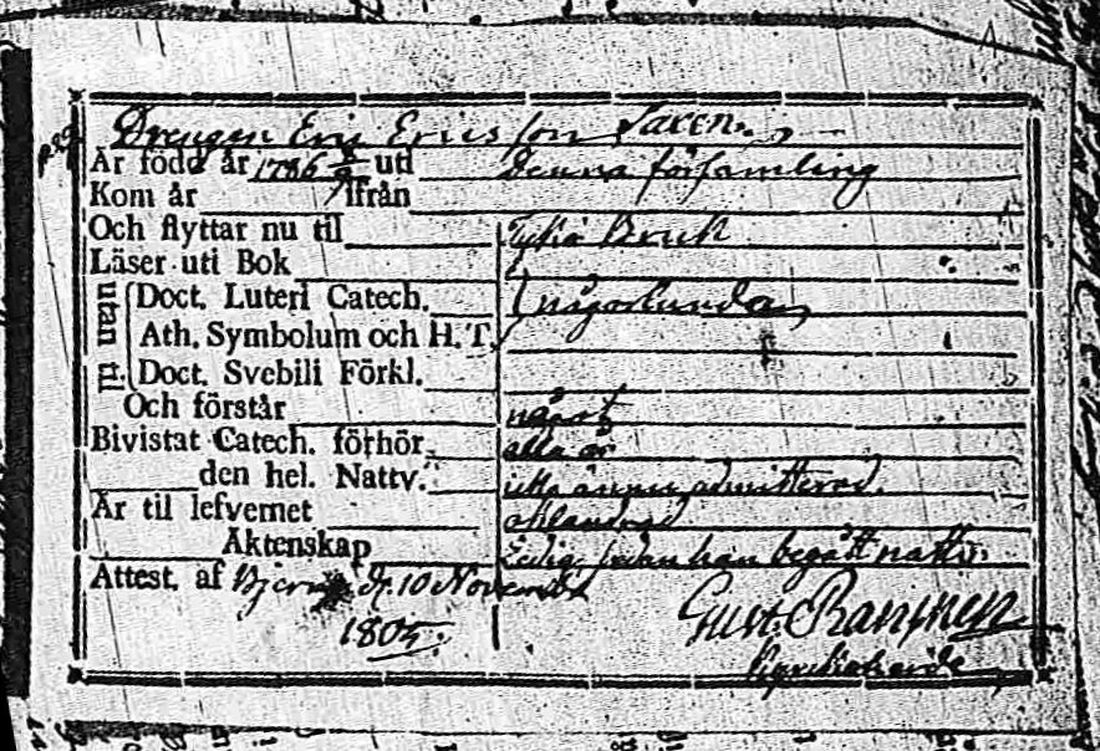 Drengen Eric Ericsson Saxen
Är född år 1786 8/9 uti Denna församling
Kom år ifrån
Och flyttar nu til Tykiö Bruk
Läser uti Bok
utan til
Doct. Luteri Catech. någorlunda
Ath. Symbolum och H. T.
Doct. Svebili Förkl.
Och förstår något
Bivistat Catech. förhör alla år
den hel. Nattv. icke ännu admitterad.
Är til lefvernet oklandrad
Äktenskap Ledig, sedan han begått nattv:
Attest. af Bjerno d. 10 Novembr
1805. Gust.